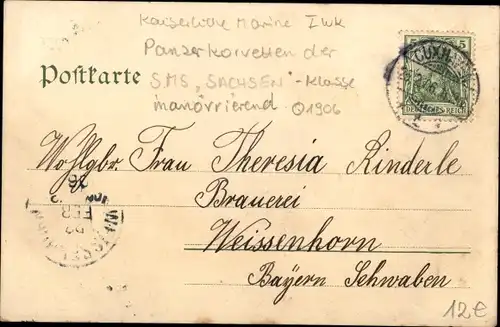 Kaiserliche Marine I wk
Panzerkorvetten der
SMS "SACHSEN"-Klasse
manövrierend O1906
Postkarte
5
DEUTSCHES REICH
CUXH
Wohlgbr. Frau Theresia Rinderle
Brauerei
Weissenhorn
Bayern Schwaben
FEB
12€